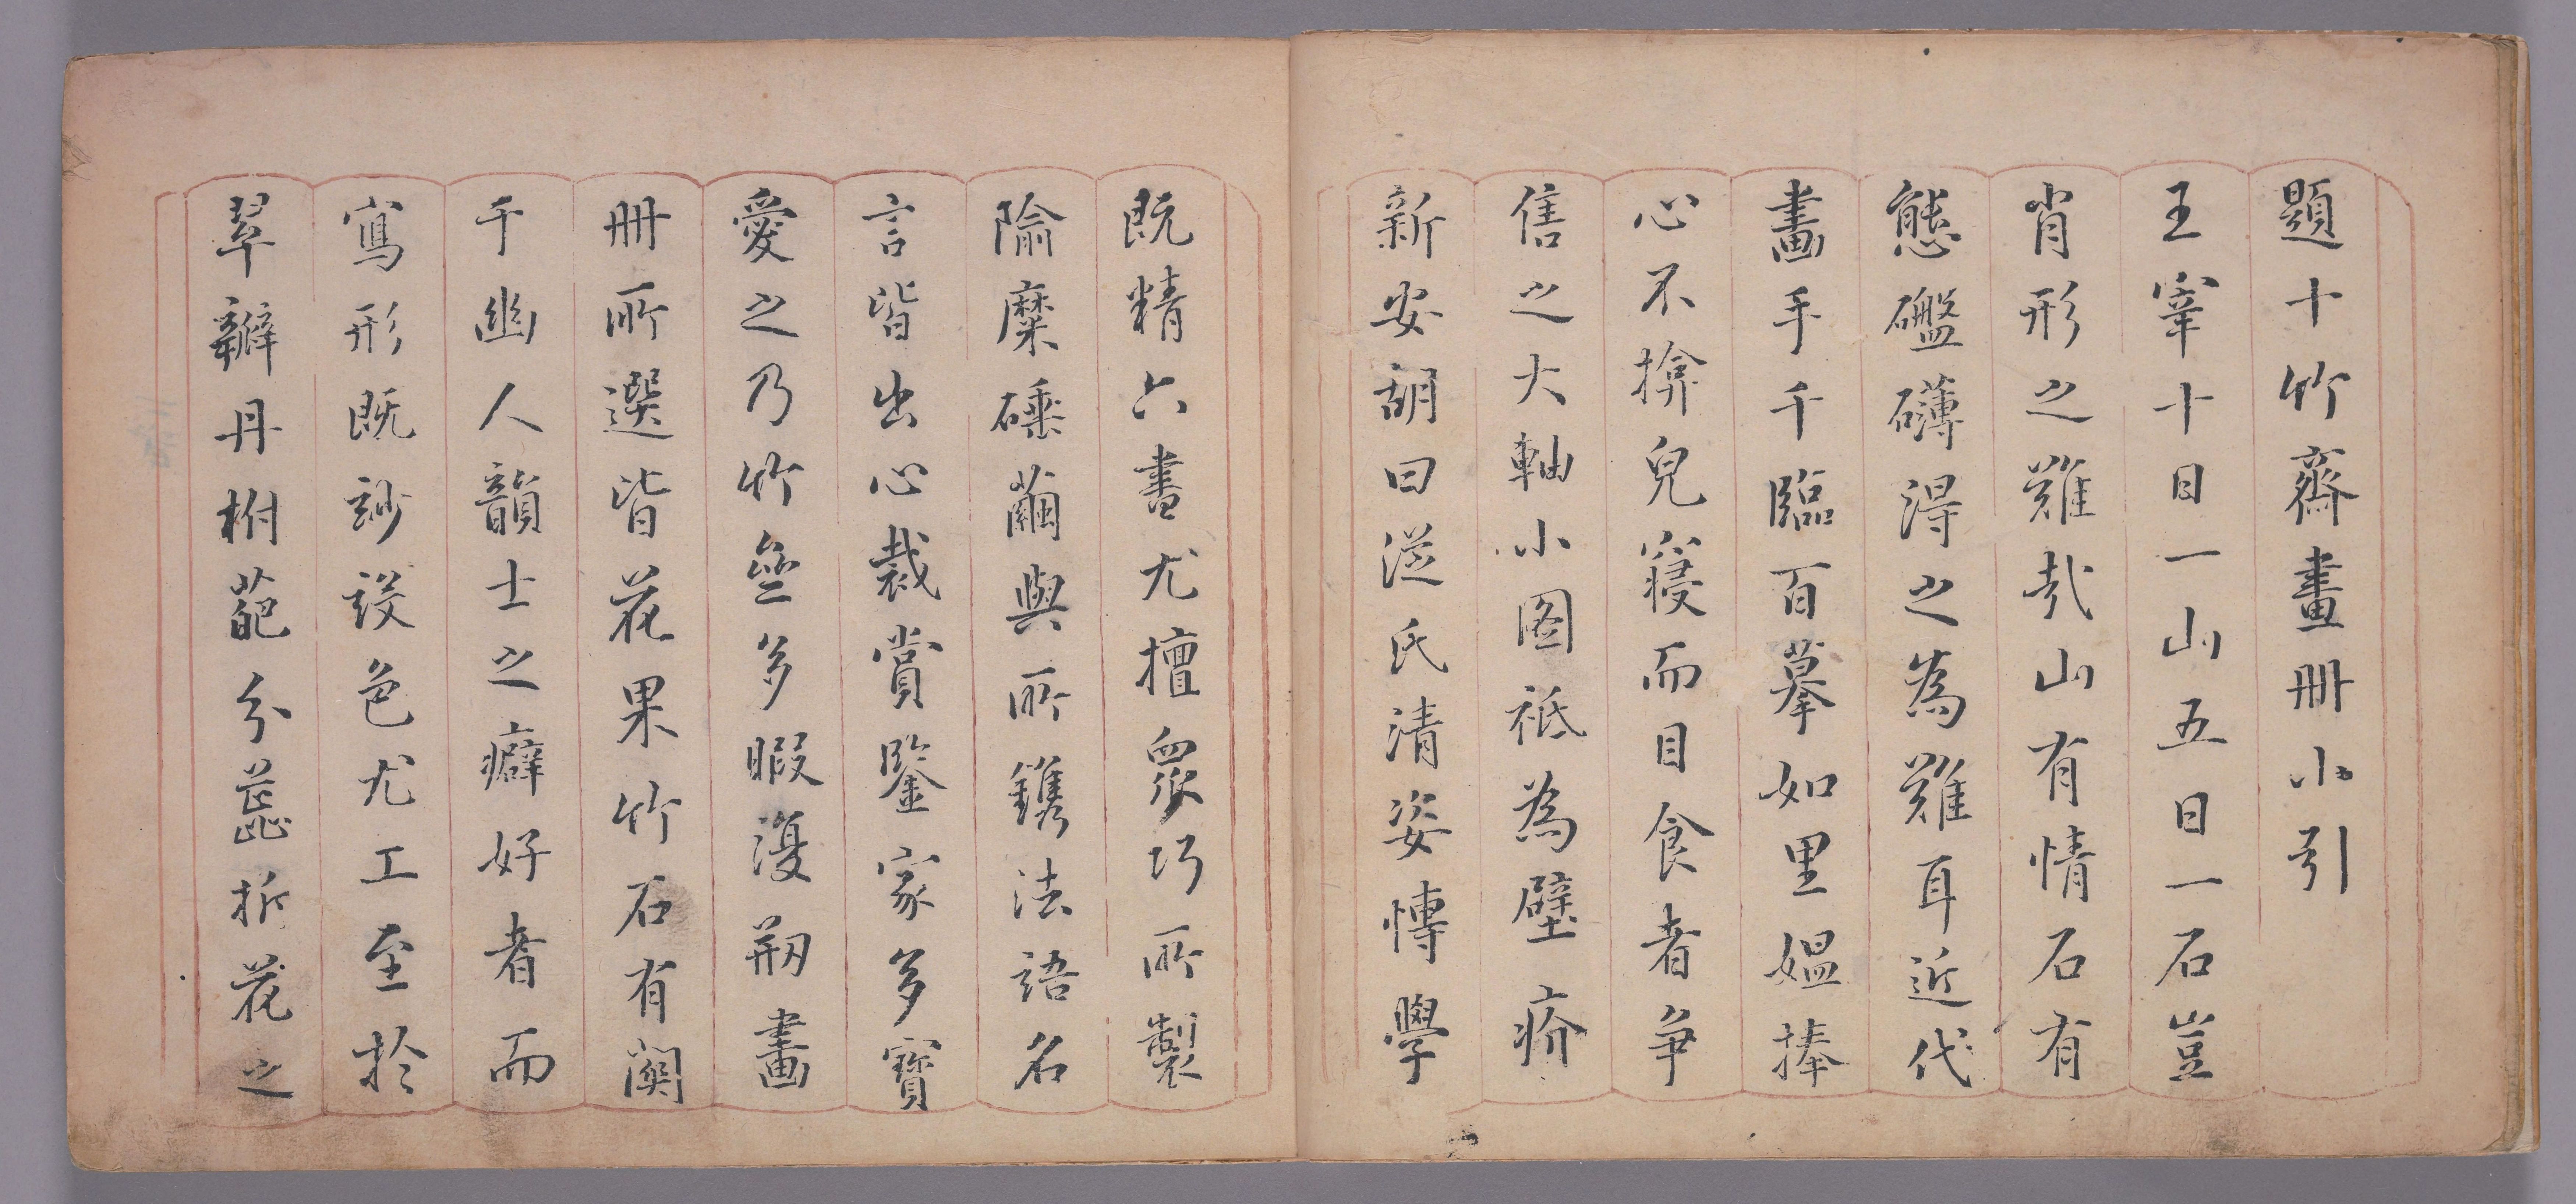 題十竹齋畫冊小引
王宰十日一山五日一石豈
肖形之難哉山有情石有
態礛礴淂之為難耳近代
畫手千臨百摹如里媼捧
心不揜皃寢而目食者爭
信之大軸小圖祗為壁疥
新安胡曰從氏清姿慱學
既精六書尤擅眾巧所製
隃糜硾繭與所鐫法語名
言皆出心裁賞鑒家多寶
愛之乃竹壘多暇漫剏畫
冊所選皆花果竹石有關
于幽人韻士之癖好者而
寫形既玅設色尤工至於
翠瓣丹柎葩分蕋折花之